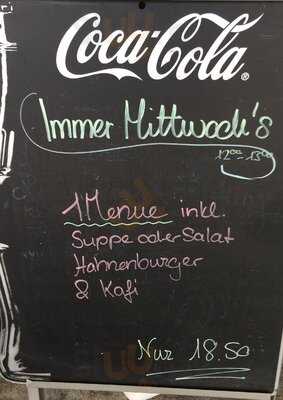 Coca-Cola®
Immer Mittwoch's
12⁰⁰-13⁰⁰
1 Menue inkl.
Suppe oder Salat
Hahnenburger
& Kafi
Nur 18.50